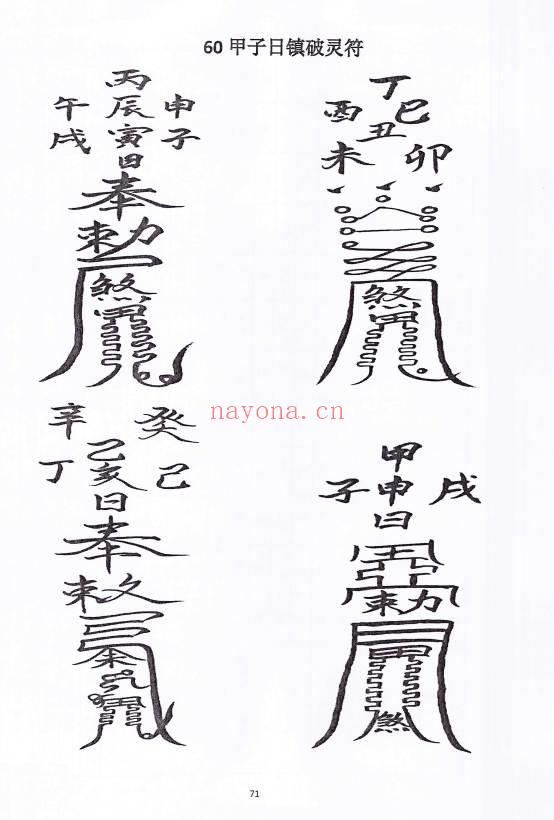 60 甲子日镇破灵符
丙
午 辰 申
戌 寅 子
日
奉
勅
煞
甲
丁
酉 巳
丑
未 卯
煞
甲
辛 癸
乙
丁 亥 己
日
奉
敕
甲
子 申 戌
日
勅
甲
煞
nayona.cn
71